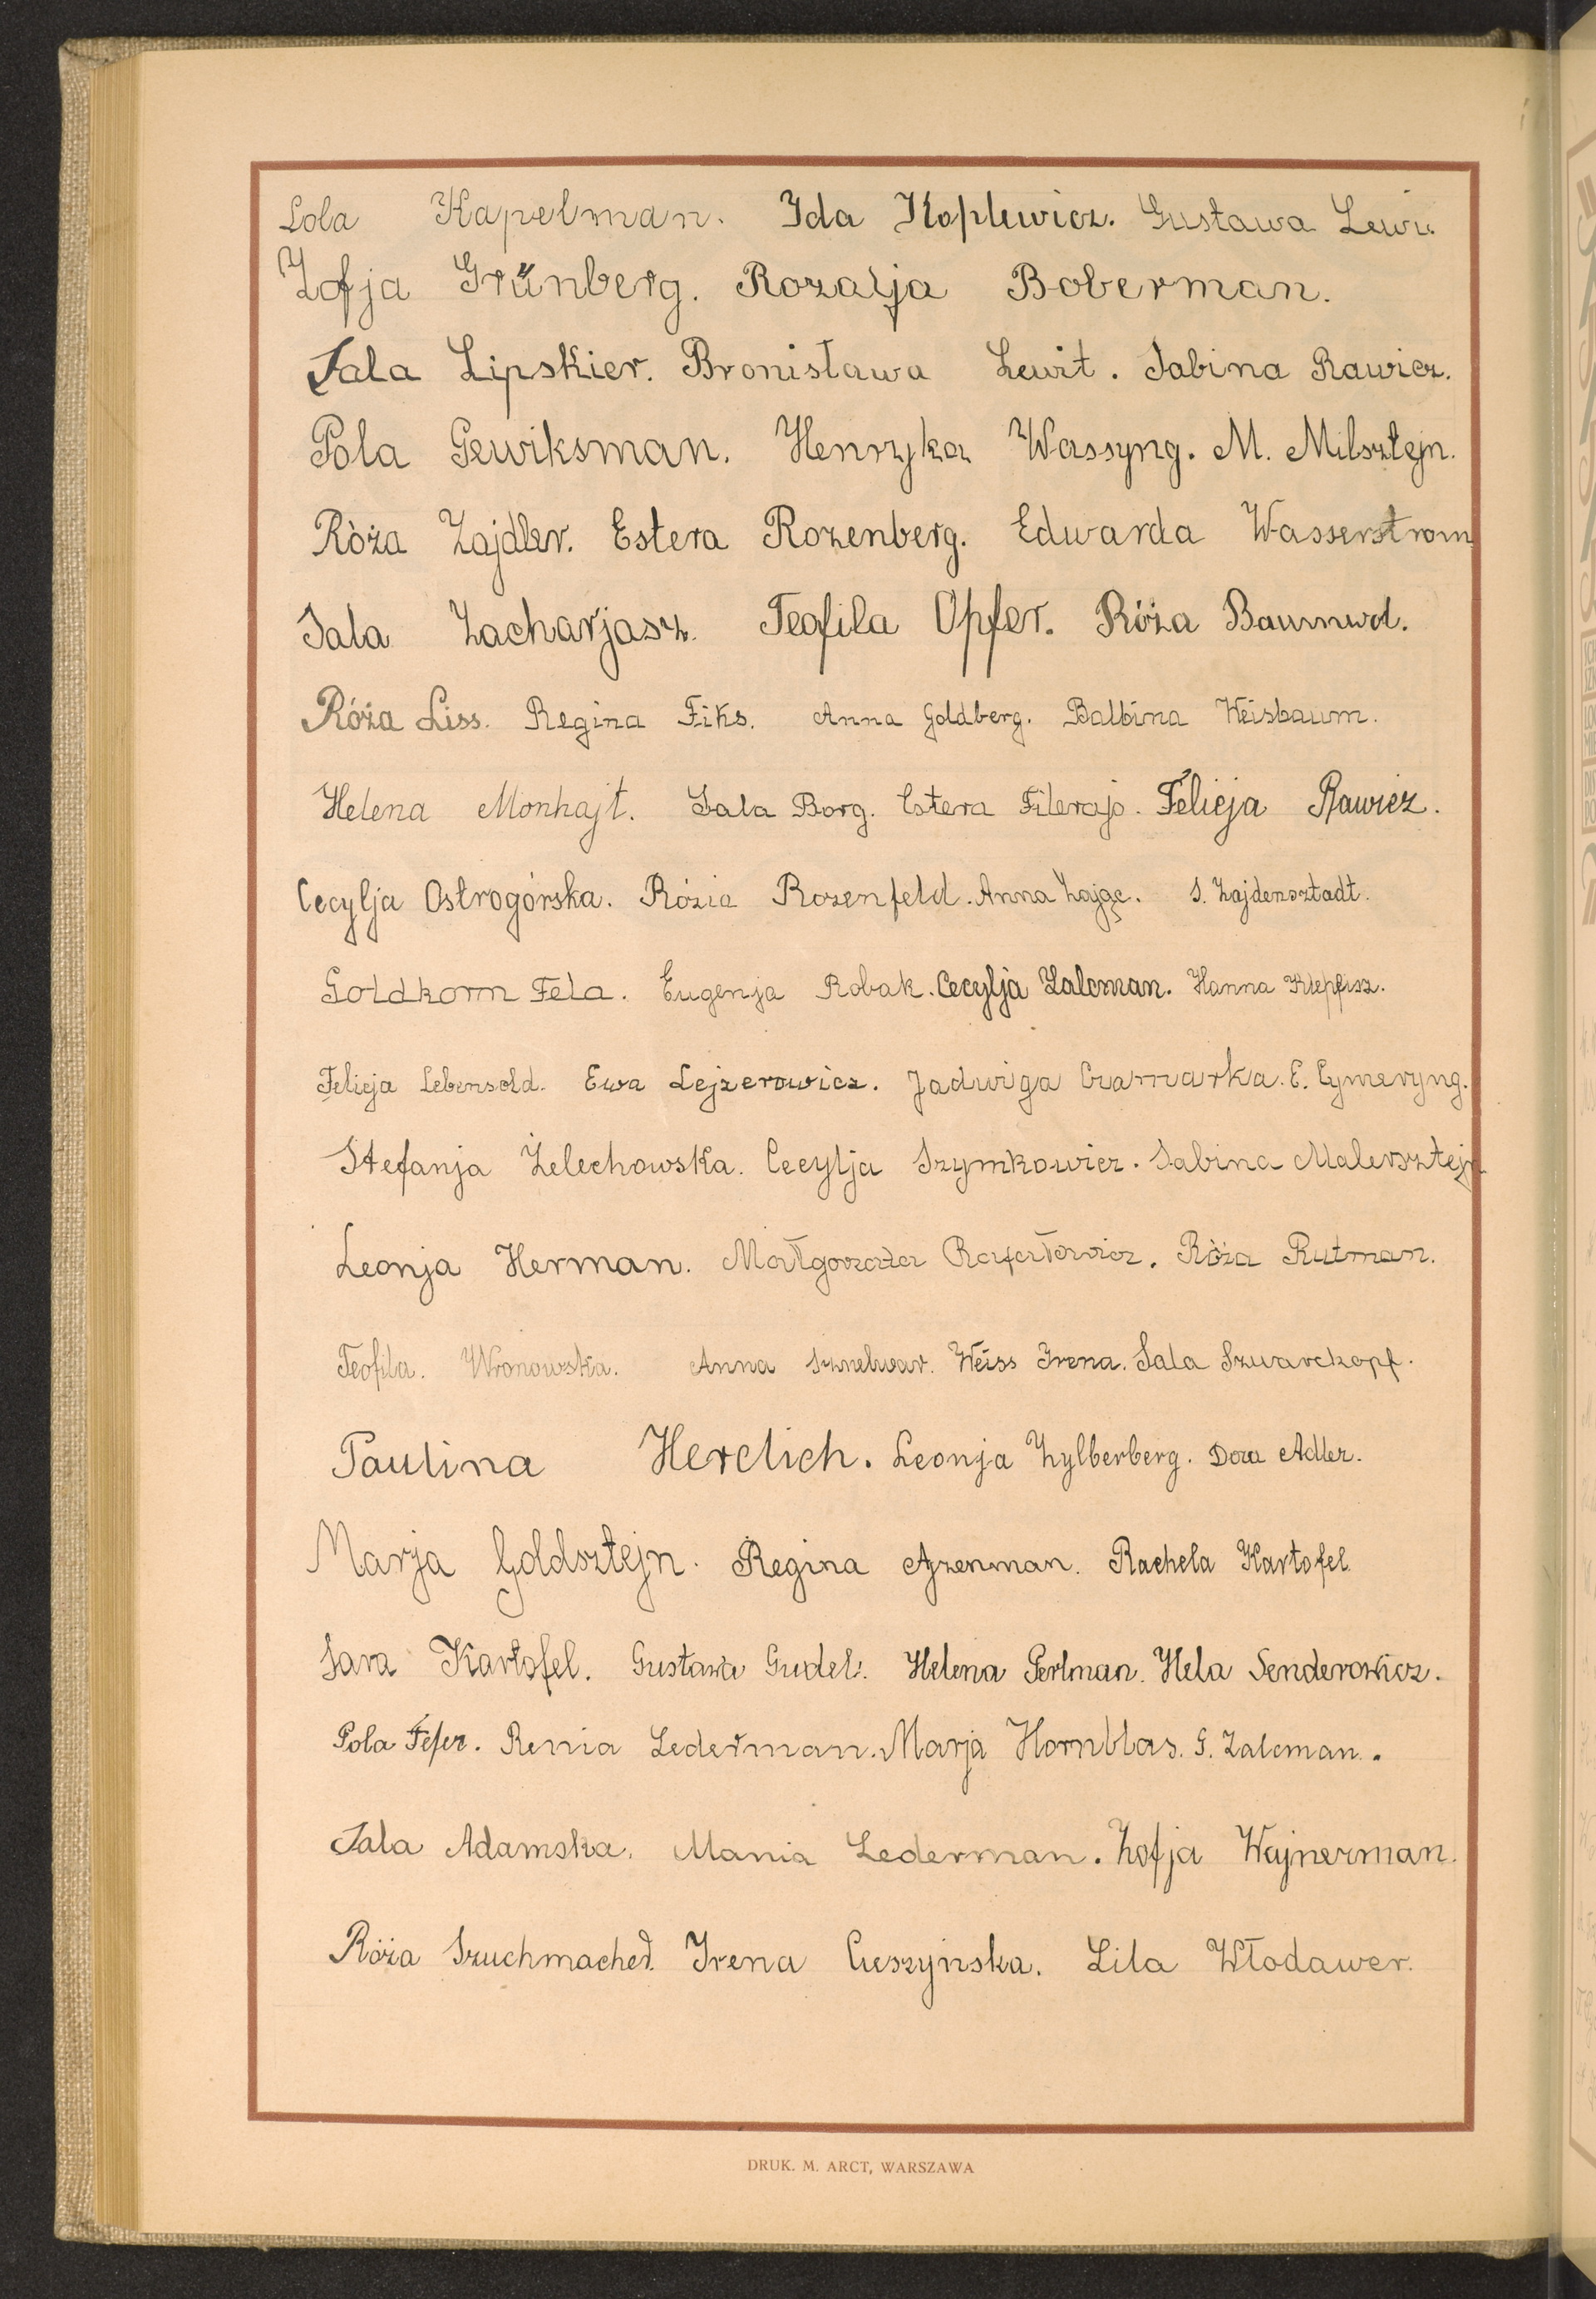 Lola Kapelman. Ida Koplewicz. Gustawa Lewi
Zofja Grünberg. Rozalja Boberman.
Sala Lipskier. Bronisława Lewit. Sabina Rawicz.
Pola Gewiksman. Henryka Wassyng. M. Milsztejn.
Róża Zajdler. Estera Rozenberg. Edwarda Wasserstrom
Sala Zacharjasz. Teofila Opfer. Róża Baumwol.
Róża Liss. Regina Fiks. Anna Goldberg. Balbina Weisbaum.
Helena Monhajt. Sala Borg. Estera Filerajs. Felicja Rawicz.
Cecylja Ostrogórska. Rózia Rozenfeld. Anna Zając. S. Zajdensztadt.
Goldkorn Fela. Eugenja Robak. Cecylja Zalcman. Hanna Klepfisz.
Felicja Lebensold. Ewa Lejzerowicz. Jadwiga Czamarka. E. Cymeryng.
Stefanja Żelechowska. Cecylja Szymkowicz. Sabina Malersztejn
Leonja Herman. Małgorzata Rafałowicz. Róża Rutman.
Teofila. Wronowska. Anna Sznelwar. Weiss Irena. Sala Szwarckopf.
Paulina Herclich. Leonja Zylberberg. Dora Adler.
Marja Goldsztejn. Regina Ajzenman. Rachela Kartofel.
Sara Kartofel. Gustawa Gudel. Helena Perlman. Hela Senderowicz.
Pola Fefer. Renia Lederman. Marja Hornblas. G. Zalcman.
Sala Adamska. Mania Lederman. Zofja Wajnerman.
Róża Szuchmacher. Irena Cieszyńska. Lila Włodawer.
DRUK. M. ARCT, WARSZAWA